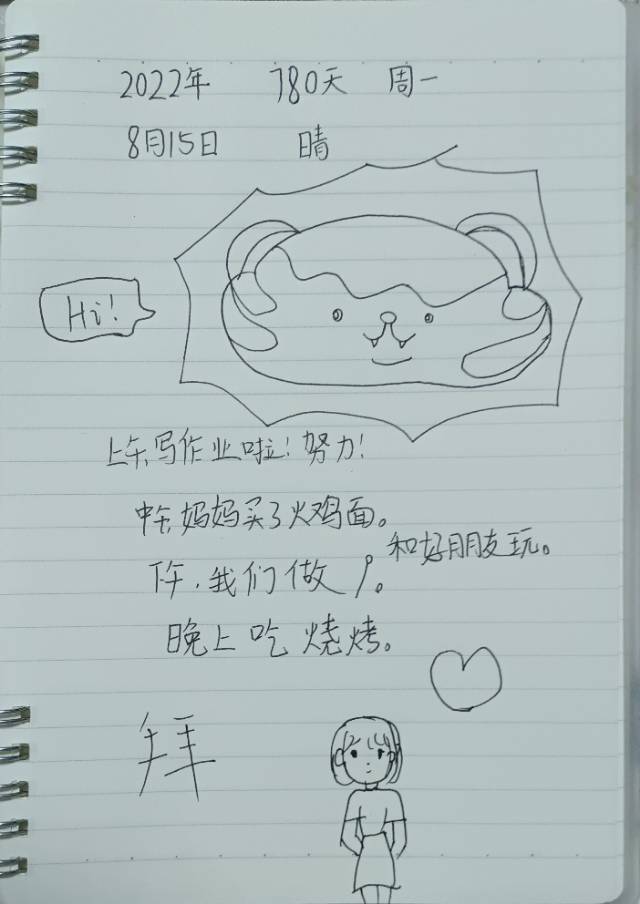 2022年 780天 周一
8月15日 晴
Hi!
上午,写作业啦!努力!
中午妈妈买了火鸡面。
下午,我们做 。和好朋友玩。
晚上吃烧烤。
拜